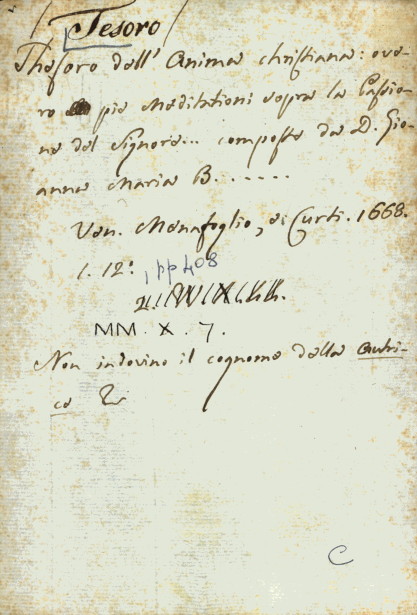 Tesoro
Thesoro dell' Anima christiana: ove-
ro pie meditationi sopra la Passio-
ne del Signore... composte da D. Gio-
anna Maria B.......
Ven. Menafoglio, e Curti. 1668.
1. 12: , pp 408
MM. X. 7.
Non indovino il cognome della autri-
ce
C